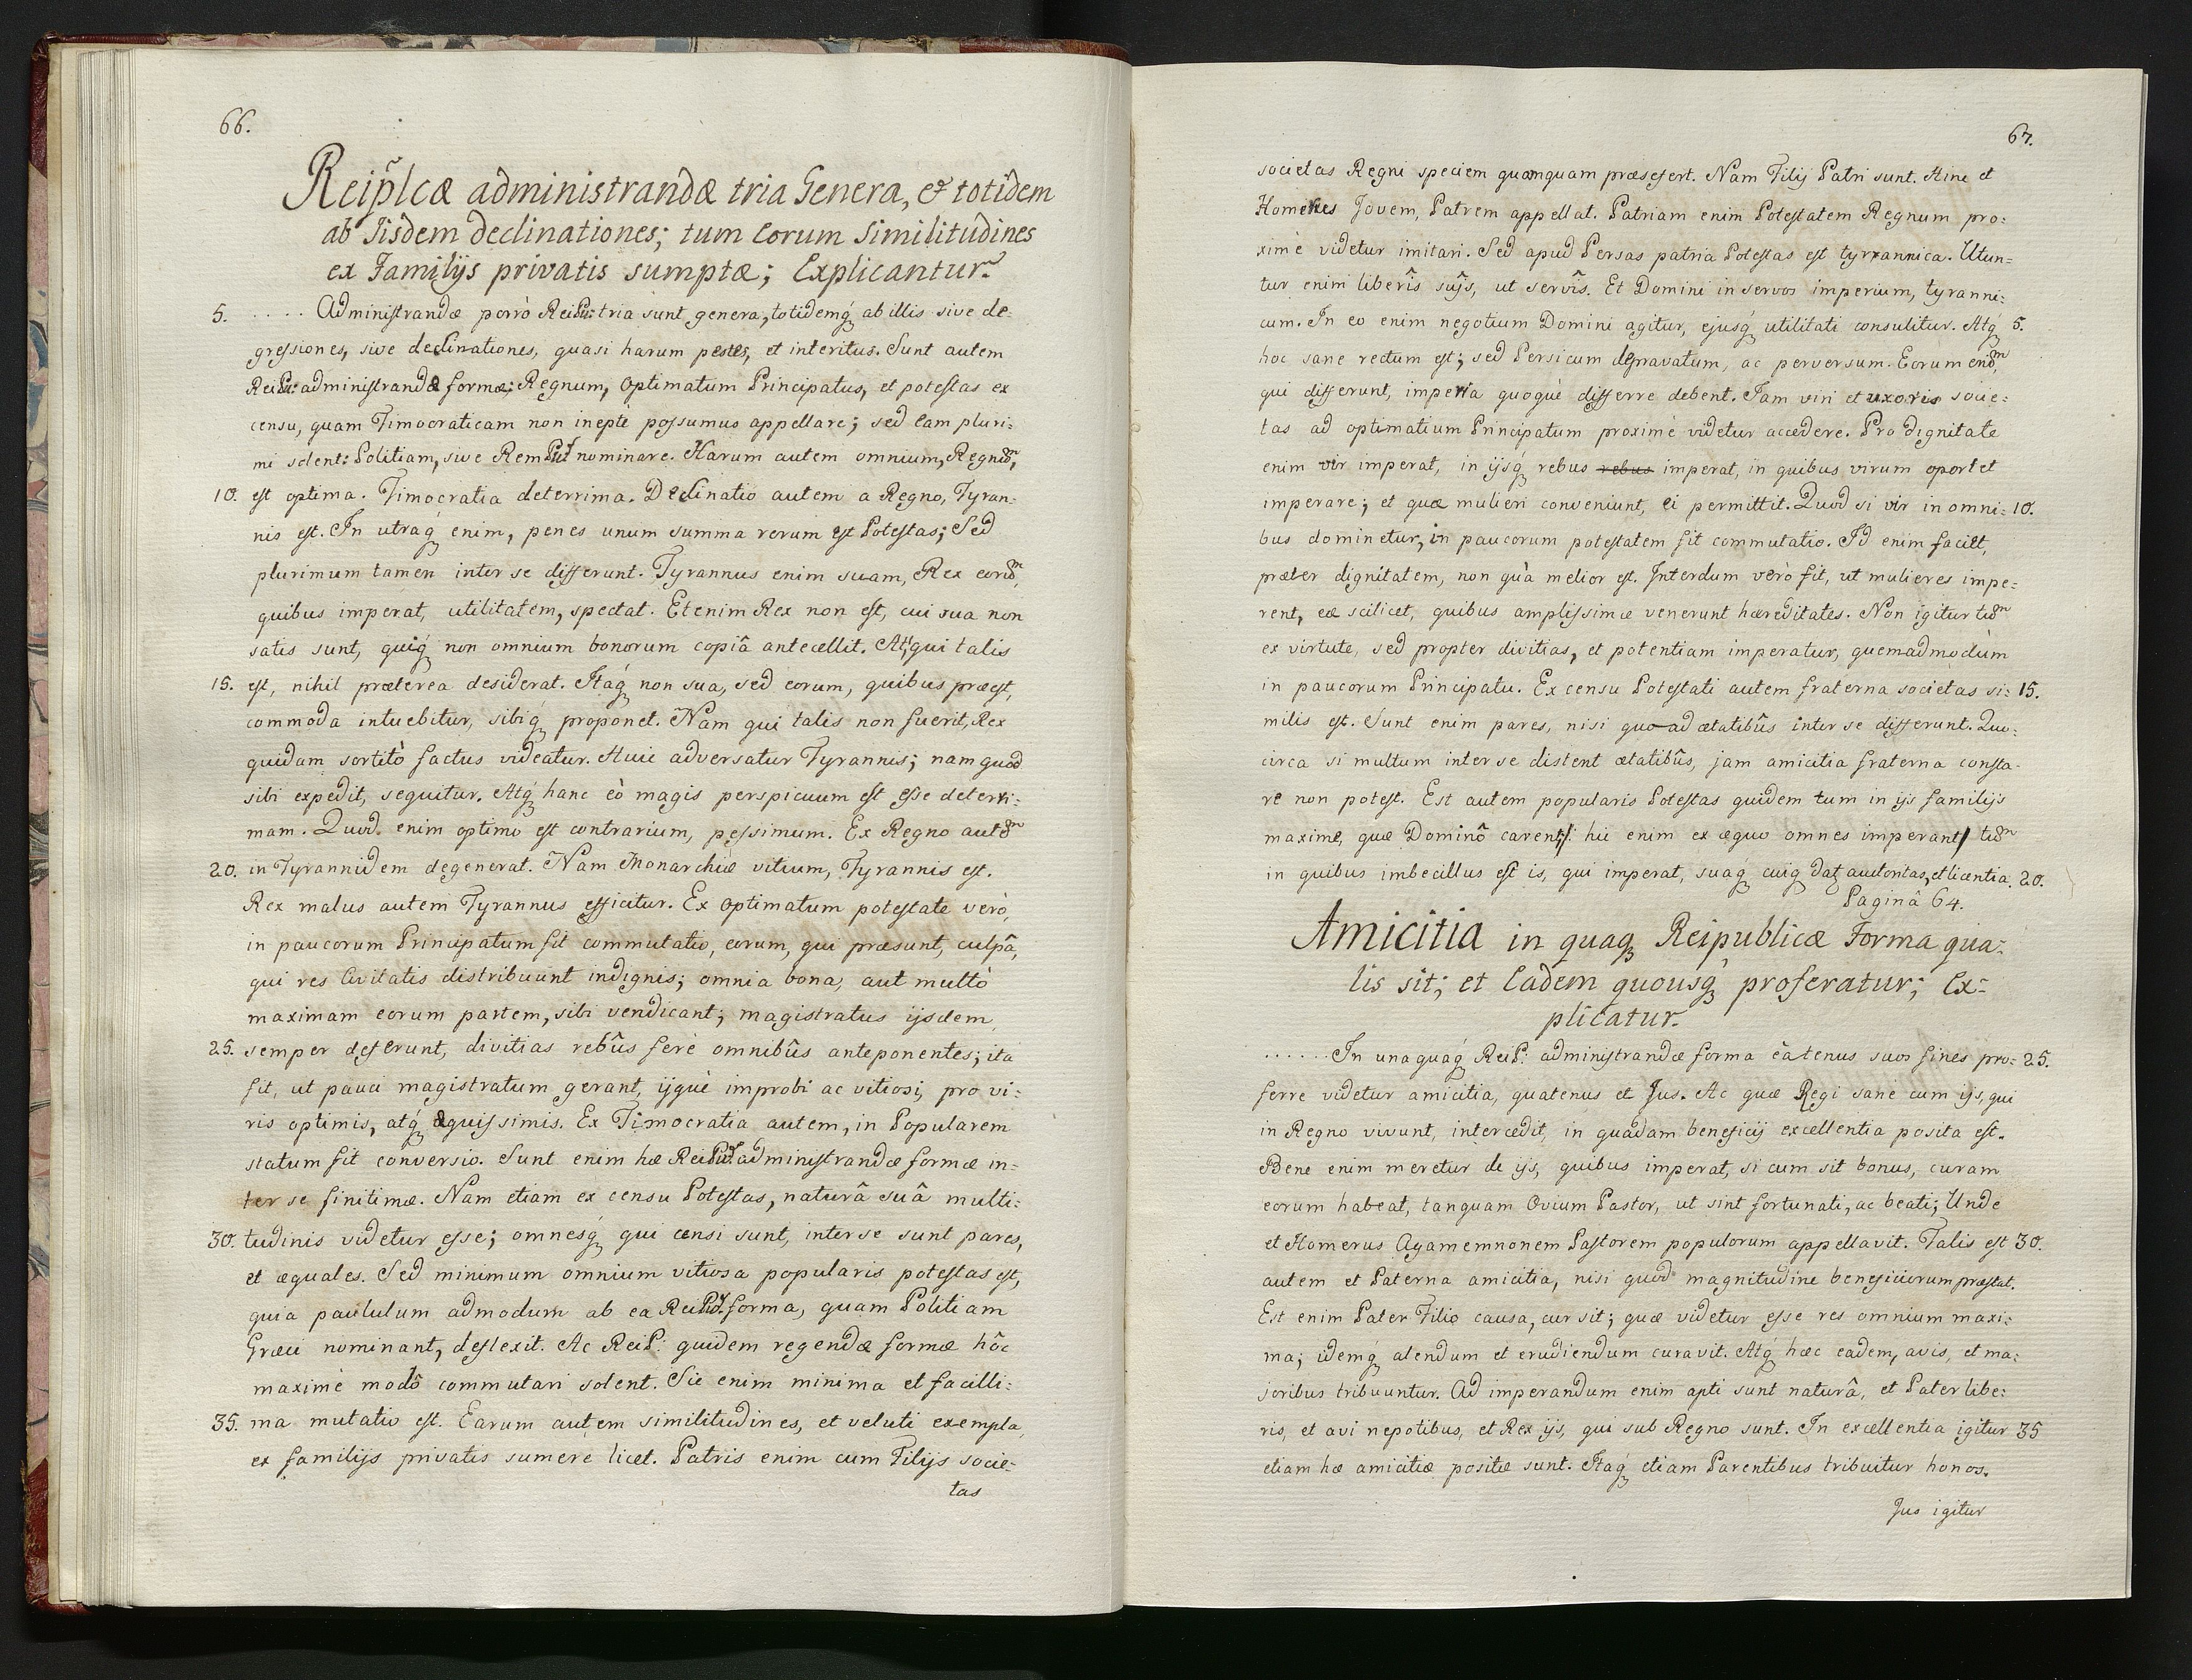 66.
Reip̃lcæ administrandæ tria Genera, & totidem
ab Iisdem declinationes; tum Eorum Similitudines
ex Familijs privatis sumptæ; Explicantur.
5. ..... Administrandæ porrò ReiPu: tria sunt genera, totidemq́ ab illis sive de-
gressiones, sive declinationes, quasi harum pestes, et interitus. Sunt autem
ReiPu: administrandæ formæ; Regnum, Optimatum Principatus, et potestas ex
censu, quam Timocraticam non ineptè possumus appellare; sed Eam pluri:
mi solent: Politiam, sive Rem Pu: nominare. Harum autem omnium, Regnũm,
10. est optima. Timocratia deterrima. Declinatio autem a Regno, Tyran-
nis est. In utraq́ enim, penes unum summa rerum est Potestas; Sed
plurimum tamen inter se differunt. Tyrannus enim suam, Rex eorũm,
quibus imperat, utilitatem, spectat. Etenim Rex non est, cui sua non
satis sunt, quiq́ non omnium bonorum copiâ antecellit. At, qui talis
15. est, nihil præterea desiderat. Itaq́ non sua, sed eorum, quibus præest,
commoda intuebitur, sibiq́ proponet. Nam qui talis non fuerit, Rex
quidam sortitò factus videatur. Huic adversatur Tyrannis; nam quod
sibi expedit, sequitur. Atq́ hanc eò magis perspicuum est esse deterri:
mam. Quod enim optimo est contrarium, pessimum. Ex Regno autẽm
20. in Tyrannidem degenerat. Nam Monarchiæ vitium, Tyrannis est.
Rex malus autem Tyrannus efficitur. Ex Optimatum potestate verò,
in paucorum Principatum fit commutatio, eorum, qui præsunt, culpâ,
qui res Civitatis distribuunt indignis; omnia bona, aut multò
maximam eorum partem, sibi vendicant; magistratus ijsdem
25. semper deferunt, divitias rebûs ferè omnibûs anteponentes; ita
fit, ut pauci magistratum gerant, ijquè improbi ac vitiosi, pro vi:
ris optimis, atq́ æquissimis. Ex Timocratia autem, in Popularem
statum fit conversio. Sunt enim hæ ReiPu: administrandæ formæ in=
ter se finitimæ. Nam etiam ex censu Potestas, naturâ suâ multi:
30. tudinis videtur esse; omnesq́ qui censi sunt, inter se sunt pares,
et æquales. Sed minimum omnium vitiosa popularis potestas est,
quia paululum admodum ab ea ReiPu: forma, quam Politiam
Græci nominant, deflexit. Ac ReiP: quidem regendæ formæ hôc
maximè modô commutari solent. Sic enim minima et facilli:
35. ma mutatio est. Earum autem similitudines, et veluti exempla
ex familijs privatis sumere licet. Patris enim cum Filijs socie-
tas
67.
societas Regni speciem quamquam præsefert. Nam Filij Patri sunt. Hinc et
Homerus Jovem, Patrem appellat. Patriam enim Potestatem Regnum pro:
ximè videtur imitari. Sed apud Persas patria Potestas est tyrannica. Utun=
tur enim liberîs suijs, ut servîs. Et Domini in servos imperium, tyranni:
cum. In eo enim negotium Domini agitur, ejusq́ utilitati consulitur. Atq́ 5.
hoc sane rectum est; sed Persicum depravatum, ac perversum. Eorum enim,
qui differunt, imperia quoquè differre debent. Jam viri et uxoris socie:
tas ad optimatium Principatum proximè videtur accedere. Pro dignitate
enim vir imperat, in ijsq́ rebus rebus imperat, in quibus virum oportet
imperare; et quæ mulieri conveniunt, ei permittit. Quod si vir in omni: 10.
bus dominetur, in paucorum potestatem fit commutatio. Id enim facit,
præter dignitatem, non quà melior est. Interdum verò fit, ut mulieres impe:
rent, eæ scilicet, quibus amplissimæ venerunt hæreditates. Non igitur tũm
ex virtute, sed propter divitias, et potentiam imperatur, quemadmodùm
in paucorum Principatu. Ex censu Potestati autem fraterna societas si: 15.
milis est. Sunt enim pares, nisi quo ad ætatibûs inter se differunt. Quo:
circa si multum inter se distent ætatibûs, jam amicitia fraterna consta-
re non potest. Est autem popularis Potestas quidem tum in ijs familijs
maximè, quæ Dominô carent /: hic enim ex æquo omnes imperant / tũm
in quibus imbecillus est is, qui imperat, suaq́ cuiq́ dat̃ autoritas, et licentia. 20.
Paginâ 64.
Amicitia in quaq Reipublicæ Forma qua:
lis sit; et Eadem quousq́ proferatur; Ex=
plicatur.
...... In unaquaq́ ReiP: administrandæ forma eatenus suos fines pro= 25.
ferre videtur amicitia, quatenus et Jus. Ac quæ Regi sanè cum ijs, qui
in Regno vivunt, intercedit, in quadam beneficij excellentia posita est.
Bene enim meretur de ijs, quibus imperat, si cum sit bonus, curam
eorum habeat, tanquam Ovium Pastor, ut sint fortunati, ac beati; Unde
et Homerus Agamemnonem Pastorem populorum appellavit. Talis est 30.
autem et Paterna amicitia, nisi quod magnitudine beneficiorum præstat.
Est enim Pater Filio causa, cur sit; quæ videtur esse res omnium maxi:
ma; idemq́ alendum et erudiendum curavit. Atq́ hæc eadem, avis, et ma:
joribus tribuuntur. Ad imperandum enim apti sunt naturâ, et Pater libe:
ris, et avi nepotibus, et Rex ijs, qui sub Regno sunt. In excellentia igitur 35
etiam hæ amicitiæ positæ sunt. Itaq́ etiam Parentibus tribuitur honos.
Jus igitur